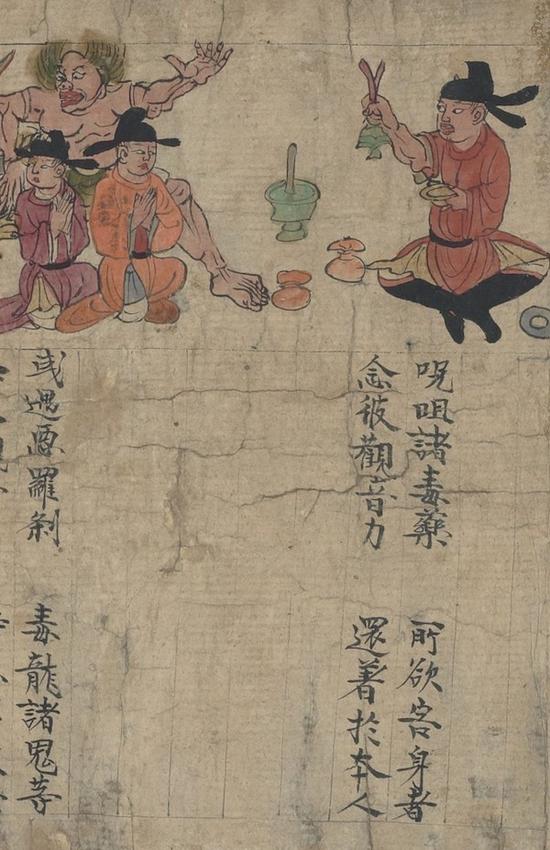 呪咀諸毒藥 所欲害身者
念彼觀音力 還著於本人
或遇惡羅剎 毒龍諸鬼等